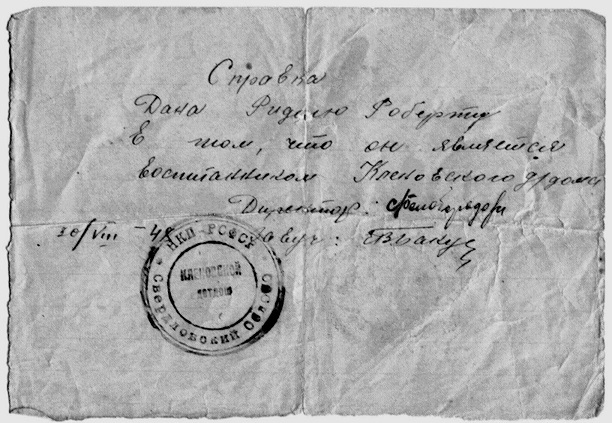 Справка
Дана Риделю Роберту
В том, что он является
воспитанником Кленовского д/дома
Директор:
30/VIII - 4
Завуч:
НКП-РСФСР
Свердловский ОБЛОНО
КЛЕНОВСКОЙ
ДЕТДОМ